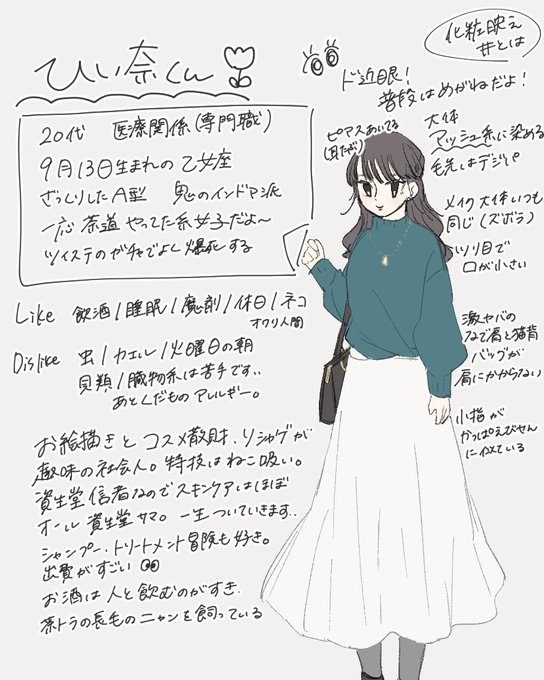 ひい奈くん
化粧映え
#とは
20代 医療関係(専門職)
9月13日生まれの乙女座
ざっくりしたA型 鬼のインドア派
一応 茶道やってた系女子だよ〜
ツイステのガチャでよく爆死する
ド近眼!
普段はめがねだよ!
ピアスあいてる
(耳たぶ)
大体
アッシュ系に染める
毛先はデジパ
メイク大体いつも
同じ(ズボラ)
ツリ目で
口が小さい
激ヤバの
なで肩と猫背
バッグが
肩にかからない
小指が
かっぱえびせん
に似ている
Like 飲酒/睡眠/魔剤/休日/ネコ
オワリ人間
Dislike 虫/カエル/火曜日の朝
貝類/臓物系は苦手です..
あとくだものアレルギー。
お絵描きとコスメ散財、リシャゲが
趣味の社会人。特技はねこ吸い。
資生堂信者なのでスキンケアはほぼ
オール資生堂サマ。一生ついていきます..
シャンプー、トリートメント冒険も好き。
出費がすごい
お酒は人と飲むのがすき.
茶トラの長毛のニャンを飼っている